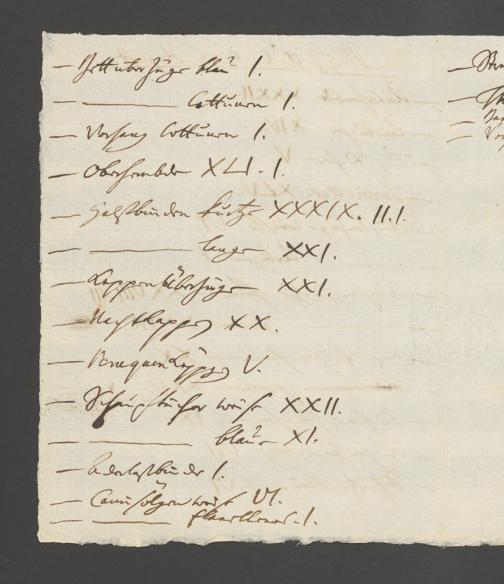 — Bettüberzüge blau I.
— ——— Cottunen I.
— Vorhang Cottunen I.
— Oberhembder XLI. I.
— Halsbinden kurtze XXXIX. II.I.
— ——— lange XXI.
— Kappenüberzüge XXI.
— Nachtkappen XX.
— Perequenkappen V.
— Schnupftücher weise XXII.
— ——— blaue XI.
— Aderlassbinde I.
— Camisölgen weise VI.
— ——— I.